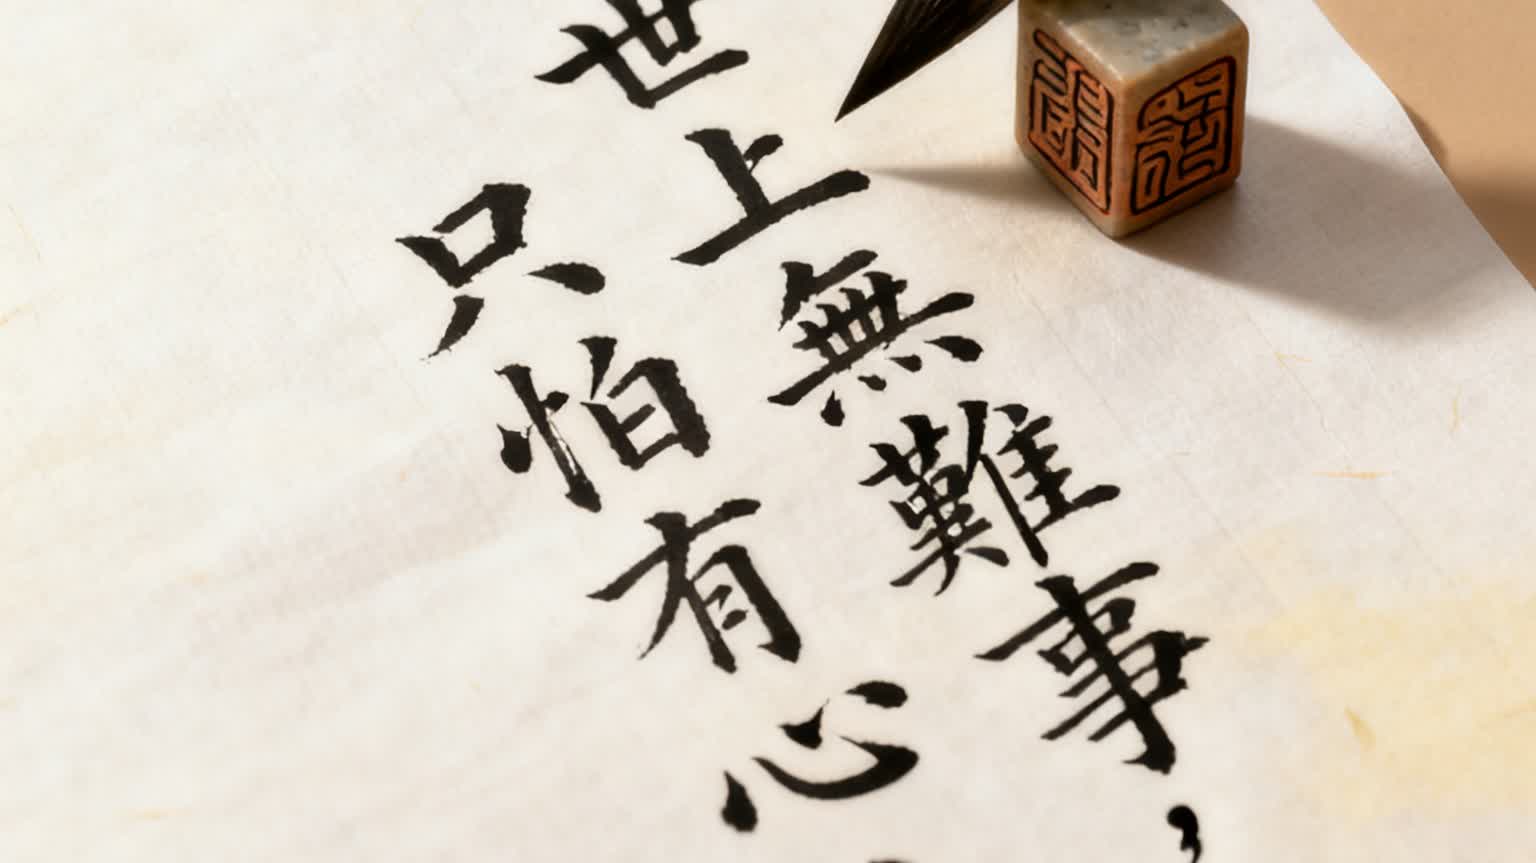 世上無難事，
只怕有心